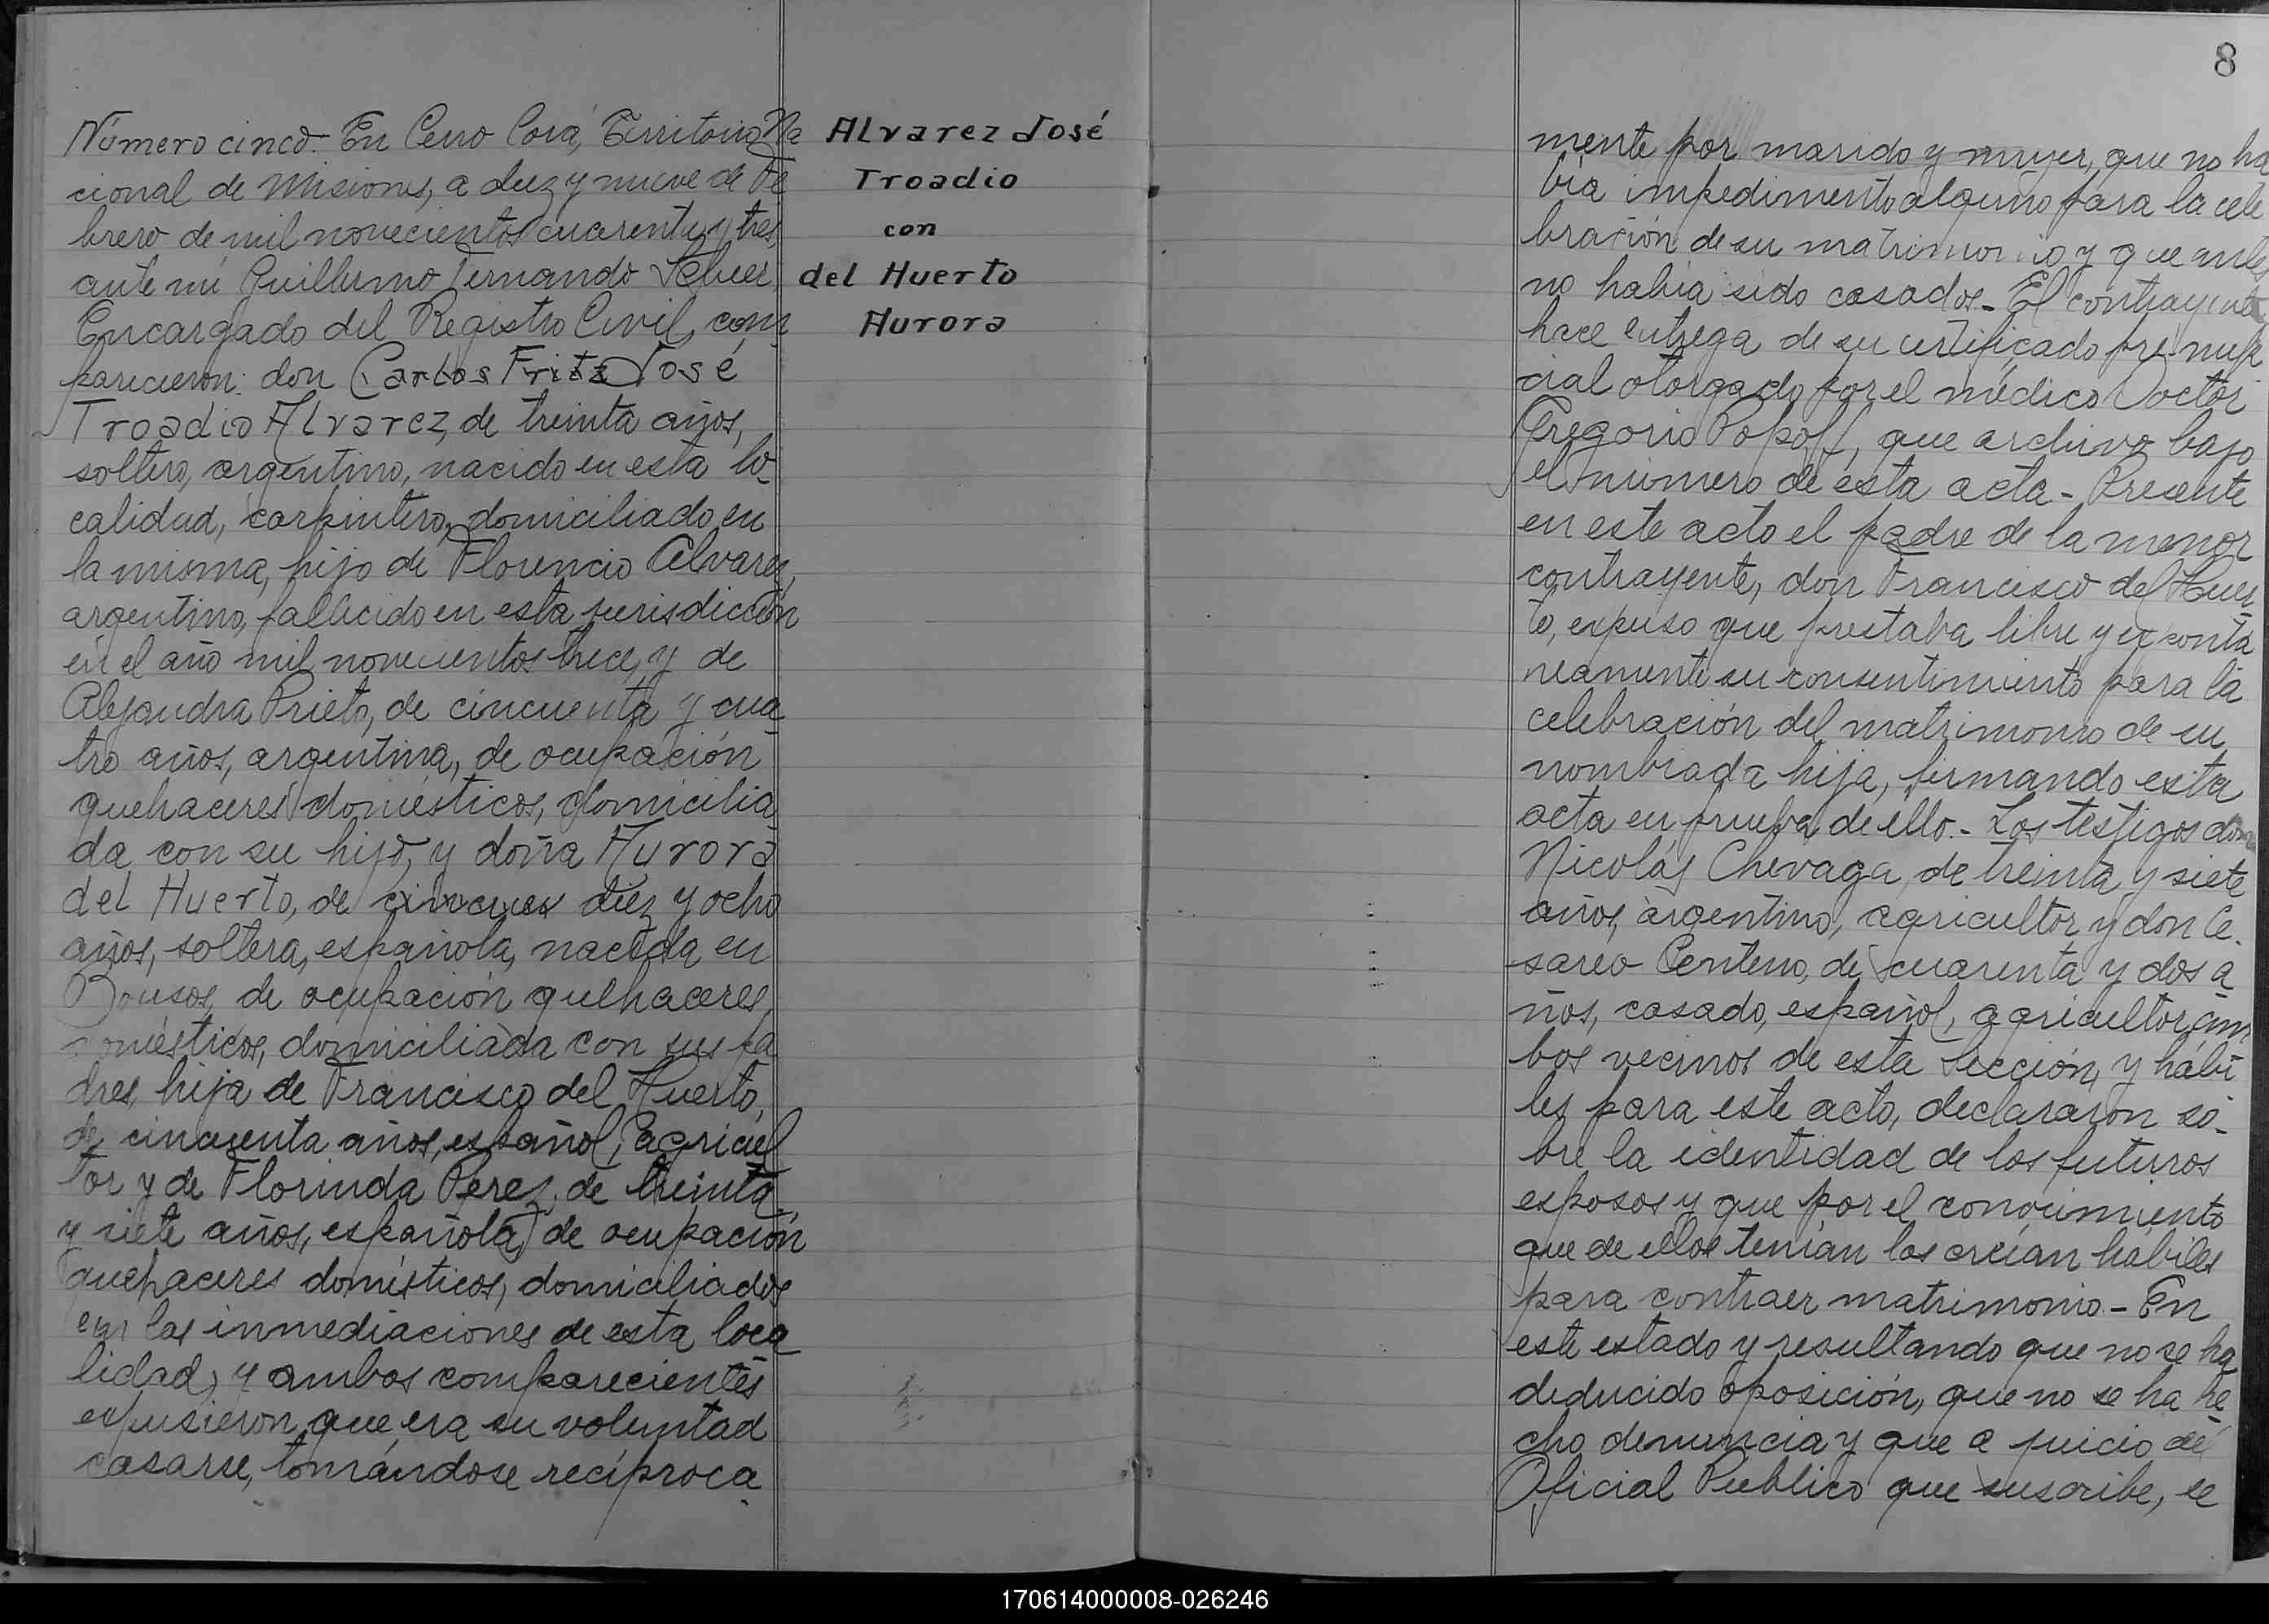 Número cinco.- En Cerro Corá, Territorio Na
cional de Misiones, a diez y nueve de Fe
brero de mil novecientos cuarenta y tres,
ante mi Guillermo Fernando
Encargado del Registro Civil, com
parecieron: don Carlos Fritz José
Troadio Alvarez, de treinta años,
soltero, argentino, nacido en esta lo
calidad, carpintero, domiciliado en
la misma, hijo de Florencio Alvarez,
argentino, fallecido en esta jurisdicción
en el año mil novecientos trece, y de
Alejandra Prieto, de cincuenta y cua
tro años, argentina, de ocupación
quehaceres domésticos, domicilia
da con su hijo, y doña Aurora
del Huerto, de diez y ocho
años, soltera, española, nacida en
de ocupación quehaceres
domésticos, domiciliada con sus pa
dres, hija de Francisco del Huerto,
de cincuenta años, español, agricul
tor y de Florinda Perez, de treinta
y siete años, española, de ocupación
quehaceres domésticos, domiciliados
en las inmediaciones de esta loca
lidad, y ambos comparecientes
expusieron que era su voluntad
casarse, tomándose recíproca
Alvarez José
Troadio
con
del Huerto
Aurora
8
mente por marido y mujer, que no ha
bia impedimento alguno para la cele
bración de su matrimonio y que antes
no habia sido casados.- El contrayente
hace entrega de su certificado pre-nup
cial otorgado por el médico Doctor
Gregorio Popoff, que archivo bajo
el número de esta acta.- Presente
en este acto el padre de la menor
contrayente, don Francisco del Huer
to, expuso que prestaba libre y exponta
neamente su consentimiento para la
celebración del matrimonio de su
nombrada hija, firmando esta
acta en prueba de ello.- Los testigos don
Nicolás Chevaga, de treinta y siete
años, argentino, agricultor y don Ce
sareo Centeno, de cuarenta y dos a
ños, casado, español, agricultor, am
bos vecinos de esta Sección, y hábi
les para este acto, declararon so
bre la identidad de los futuros
esposos y que por el conocimiento
que de ellos tenían los creían hábiles
para contraer matrimonio.- En
este estado y resultando que no se ha
deducido oposición, que no se ha he
cho denuncia y que a juicio del
Oficial Público que suscribe, se
170614000008-026246